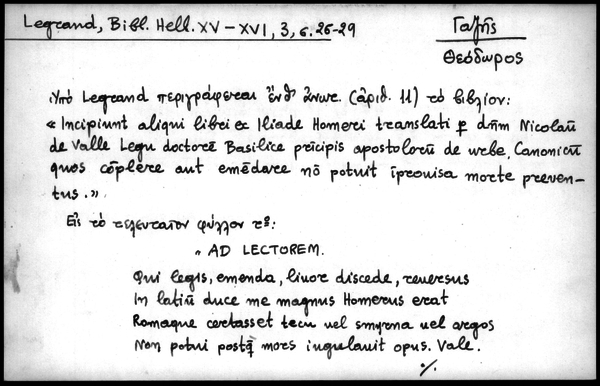 Legrand, Bibl. Hell. XV – XVI, 3, σ. 26-29
Γαζῆς
Θεόδωρος
Ὑπό Legrand περιγράφεται ἔνθ' ἄνωτ. (ἀριθ. 11) τό βιβλίον:
« Incipiunt aliqui libri ex Iliade Homeri translati ꝑ dn̄m Nicolaū
de Valle Legū doctorē Basilice prīcipis apostolorū de urbe, Canonicū
quos cōplere aut emēdare nō potuit īprouisa morte preven-
tus. ».
Εἰς τό τελευταῖον φύλλον το:
« AD LECTOREM.
Qui legis, emenda, livor discede, reversus
In latiū duce me magnus Homerus erat
Romaque certasset tecū uel smyrna uel argos
Non potui postq̄ mors iugulavit opus. Vale.
٪.